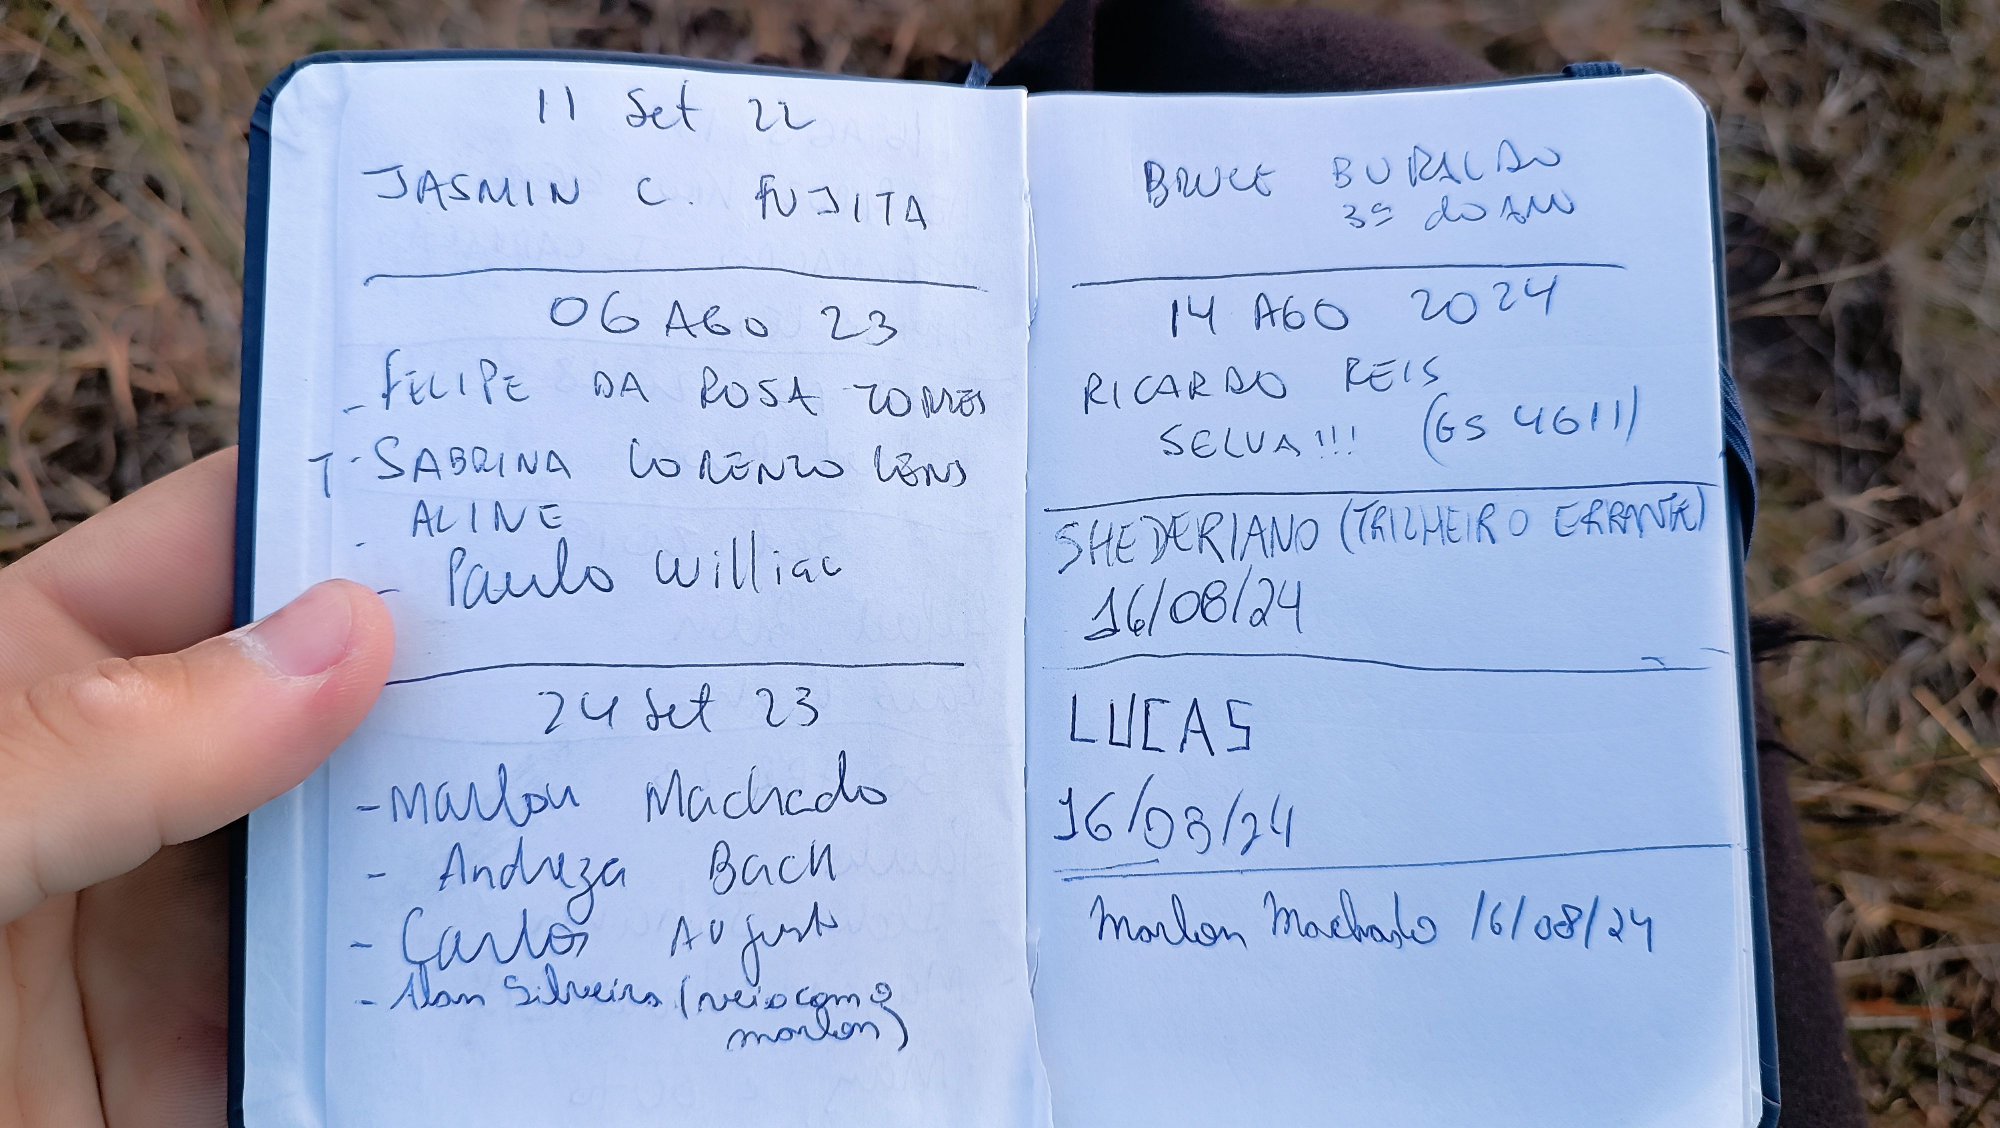 11 Set 22
JASMIN C. FUJITA
06 AGO 23
- FELIPE DA ROSA TORRES
T - SABRINA LORENZO LENS
- ALINE
- Paulo Willian
24 Set 23
- Marlon Machado
- Andreza Bach
- Carlos Augusto
- Alan Silveira (veio com o
marlon)
BRUCE
3º do ANO
14 AGO 2024
RICARDO REIS
SELVA!!! (GS 4611)
SHEDERIANO (TRILHEIRO ERRANTE)
16/08/24
LUCAS
16/08/24
Marlon Machado 16/08/24